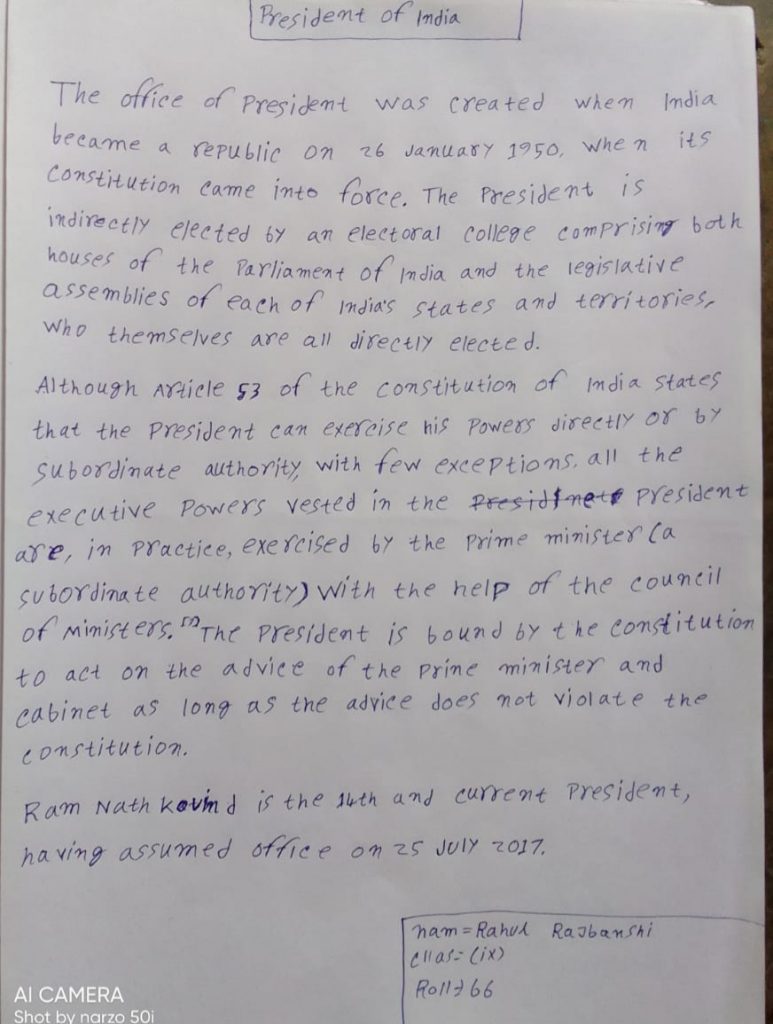 President of India
The office of President was created when India
became a republic on 26 January 1950, when its
Constitution came into force. The President is
indirectly elected by an electoral college comprising both
houses of the Parliament of India and the legislative
assemblies of each of India's states and territories,
who themselves are all directly elected.
Although Article 53 of the constitution of India states
that the President can exercise his Powers directly or by
subordinate authority, with few exceptions, all the
executive Powers vested in the President
are, in Practice, exercised by the Prime minister (a
subordinate authority) with the help of the council
of Ministers. The President is bound by the constitution
to act on the advice of the prine minister and
cabinet as long as the advice does not violate the
constitution.
Ram Nath kovind is the 14th and current President,
having assumed office on 25 July 2017.
nam = Rahul Rajbanshi
Cllas = (ix)
Roll → 66
AI CAMERA
Shot by narzo 50i